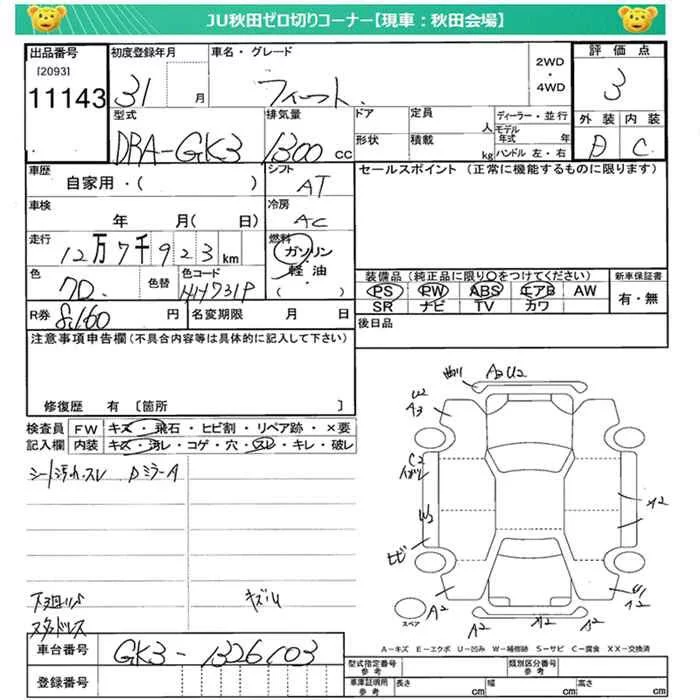 JU秋田ゼロ切りコーナー【現車：秋田会場】
出品番号 初度登録年月 車名・グレード 2WD・4WD 評価点
[2093]
11143 31 月 フィット 3
型式 排気量 ドア 定員 人 ディーラー・並行 外装 内装
DBA-GK3 1300 cc 形状 積載 kg モデル年式 年 ハンドル 左・右 D C
車歴 自家用・( ) シフト AT セールスポイント (正常に機能するものに限ります)
車検 年 月( 日) 冷房 AC
走行 12万7千923 km 燃料 ガソリン・軽油 ( )
色 色替 色コード NH731P
装備品 (純正品に限り○をつけてください) 新車保証書
PS PW ABS エアB AW 有・無
SR ナビ TV カワ
R券 8,160 円 名変期限 月 日 後日品
注意事項申告欄 (不具合内容等は具体的に記入して下さい)
修復歴 有 〔箇所 〕
検査員 FW キズ・飛石・ヒビ割・リペア跡・×要
記入欄 内装 キズ・汚れ・コゲ・穴・スレ・キレ・破レ
シート汚れ・スレ DミラーA
曲り A3 U2
U2
A3
C2
W2
ヒビ
A2
A2
X2
スペア
下廻りサビ キズ
スタッドレス
A－キズ E－エクボ U－凹み W－補修跡 S－サビ C－腐食 XX－交換済
車台番号 GK3-1326103
登録番号
型式指定番号 参考 類別区分番号 参考
車庫証明用 参考 長さ cm 幅 cm 高さ cm